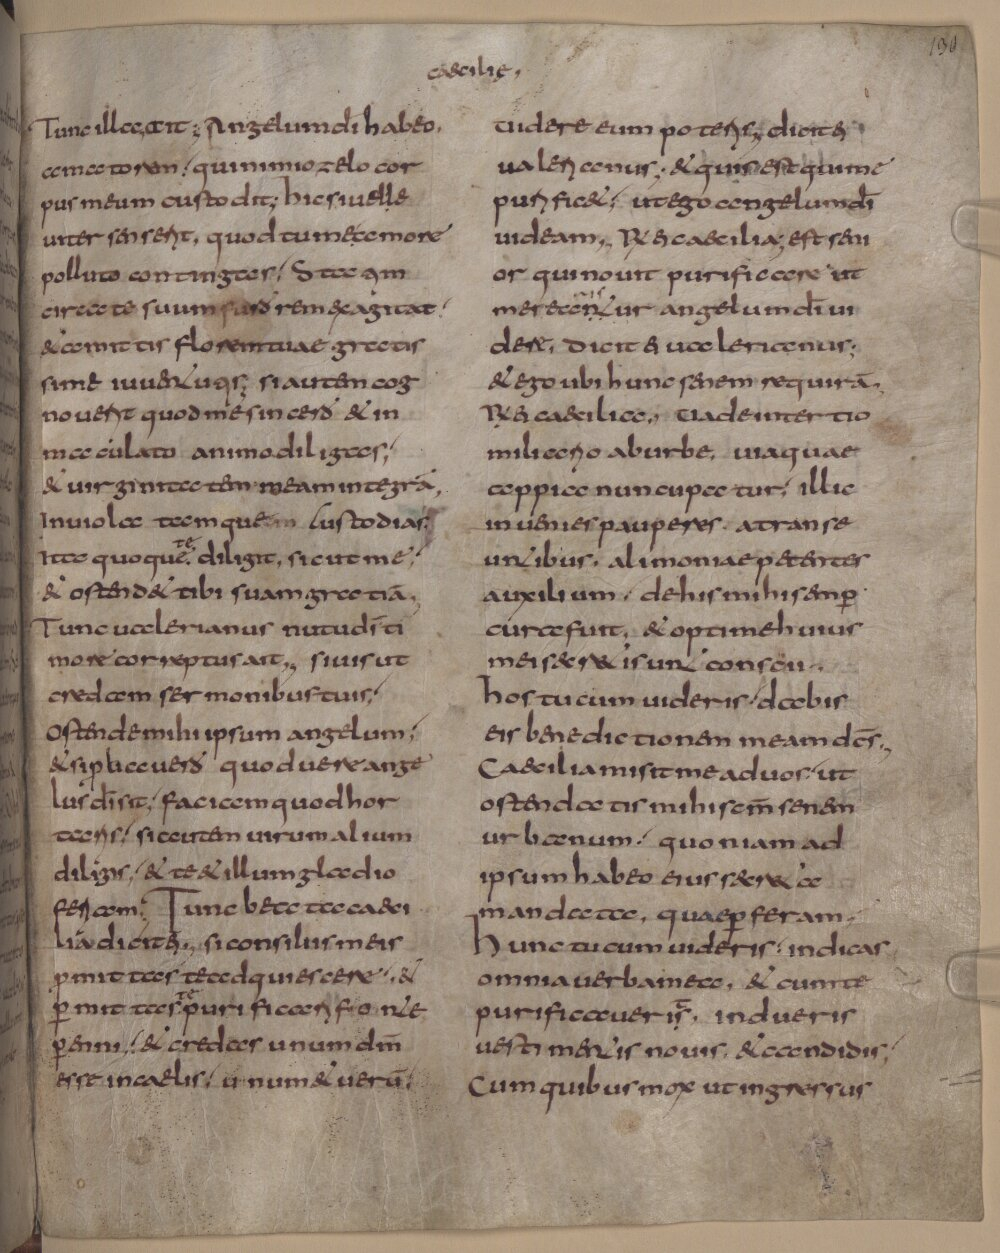 caecilie,
130
Tunc illa ait; Angelum dī habeo,
amatorem; qui nimio zelo cor
pus meum custodit; hic si vel le
viter senserit, quod tu me amore
polluto contingas; Statim
circa te suum furorem exagitat;
& amittis florem tuae gratis
sime iuuentutis; si autem cog
noverit quod me sincero & in
maculato animo diligas;
& uirginitatem meam integrā,
Inuiolatamque custodias;
Ita quoque te diligit, sicut me;
& ostendet tibi suam gratiā,
Tunc ualerianus nutu dī ti
more correptus ait, si uis ut
credam sermonibus tuis;
Ostende mihi ipsum angelum;
& si p̄bauero quod uere ange
lus dī sit; faciam quod hor
taris; si autem uirum alium
diligis; & te & illum gladio
feriam; Tunc beata caeci
lia dicit ei, si consiliis meis
p̄mittas te adquiescere; &
p̄mittas te purificari fonte
p̄enni; & credas unum dm̄
esse in caelis; unum & uerū;
tu dere eum poteris; dicit ei
ualerianus; & quis est qui me
purificet; ut ego angelum dī
uideam, R ei caecilia; est seni
or qui nouit purificare ut
mereantur angelum dī ui
dere, Dicit ei ualerianus;
& ego ubi hunc senem requirā,
R ei caecilia, Uade in tertio
miliario ab urbe, uia quae
appia nuncupatur; illic
inuenies pauperes a transe
untibus, alimoniae petentes
auxilium; de his mihi semp̄
cura fuit, & optime huius
mei secreti sunt conscii,
hos tu cum uideris; dabis
eis benedictionem meam dc̄s,
Caecilia misit me ad uos; ut
ostendatis mihi scm̄ senem
urbanum; quoniam ad
ipsum habeo eius secreta
mandata, quae p̄feram,
Hunc tu cum uideris; indicas
omnia uerba mea, & cum te
purificauerit, indueris
uestimentis nouis, & candidis;
Cum quibus mox ut ingressus